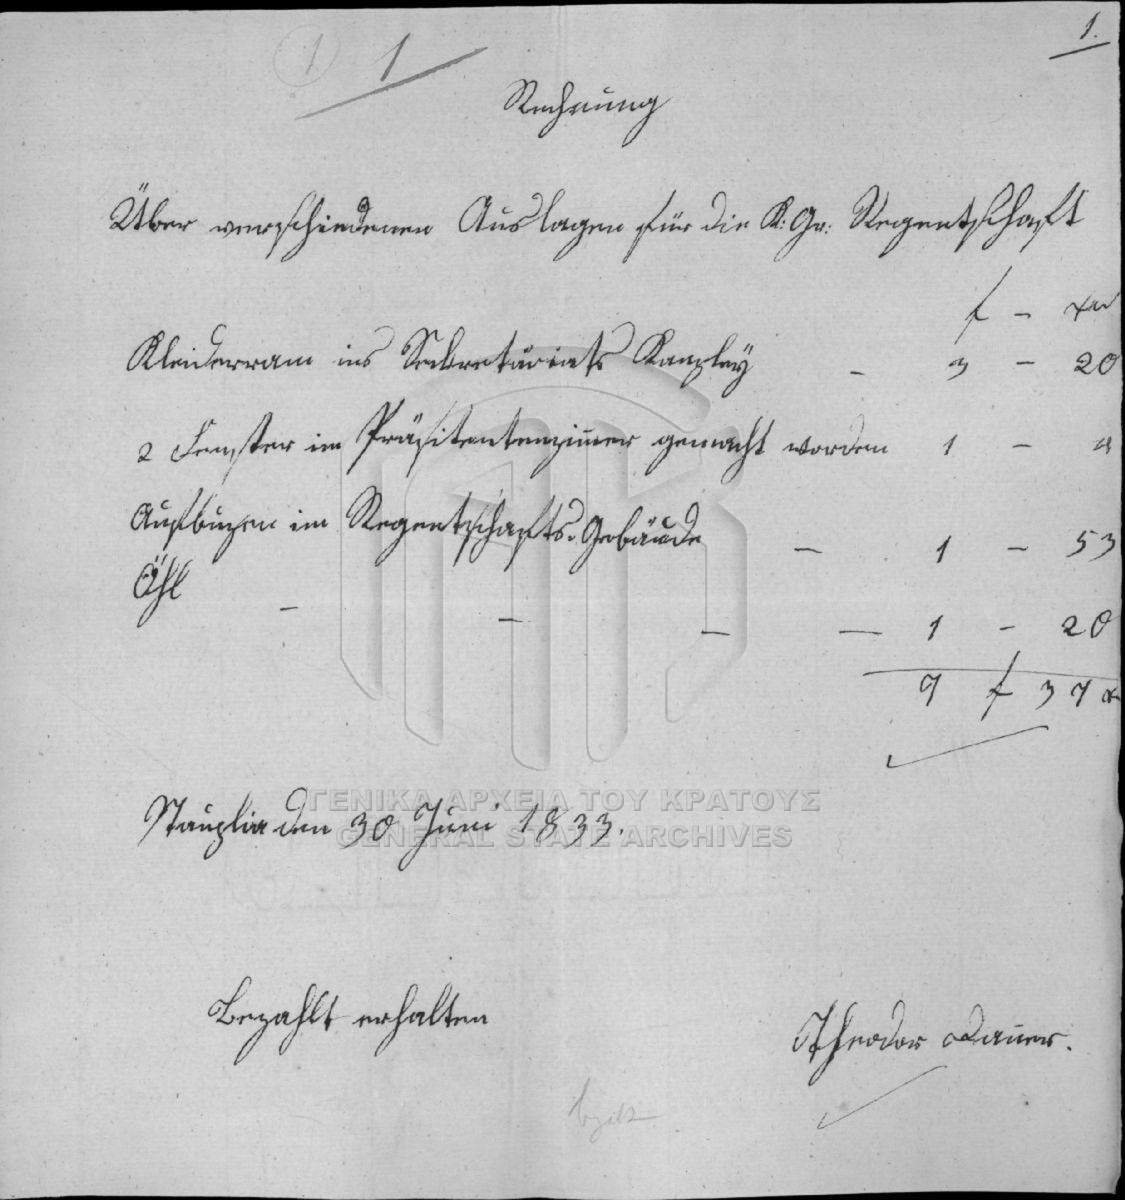 1 1 1.
Rechnung
Über verschiedenen Auslagen für die K: Gr: Regentschaft
f – xr
Kleiderram ins Secretariats Kanzley – 3 – 20
2 Fenster im Präsitentenzimmer gemacht worden 1 – 4
Aufbuzen im Regentschafts-Gebäude – 1 – 53
Öhl – – – – 1 – 20
f 37 x
ΓΕΝΙΚΑ ΑΡΧΕΙΑ ΤΟΥ ΚΡΑΤΟΥΣ
Nauplia den 30 Juni 1833.
GENERAL STATE ARCHIVES
Bezahlt erhalten
Theodor